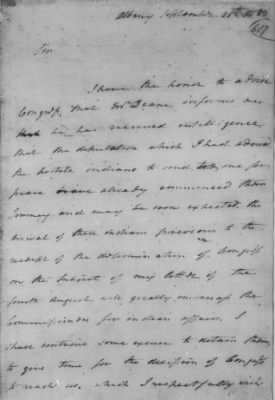 Albany September
Sir
I have the honor to advise
Congress that Mr Deane informs me
he has received intelligence
that the deputation which I had advised
the hostile indians to send to sue for
peace have already commenced their
Journey and may be soon expected, the
arrival of these indians previous to the
receipt of the determination of Congress
on the subject of my letter of the
fourth August, will greatly embarrass the
Commissioners for indian affairs. I
shall contrive some excuse to detain them,
to give time for the decission of Congress
to reach us, which I respectfully wish